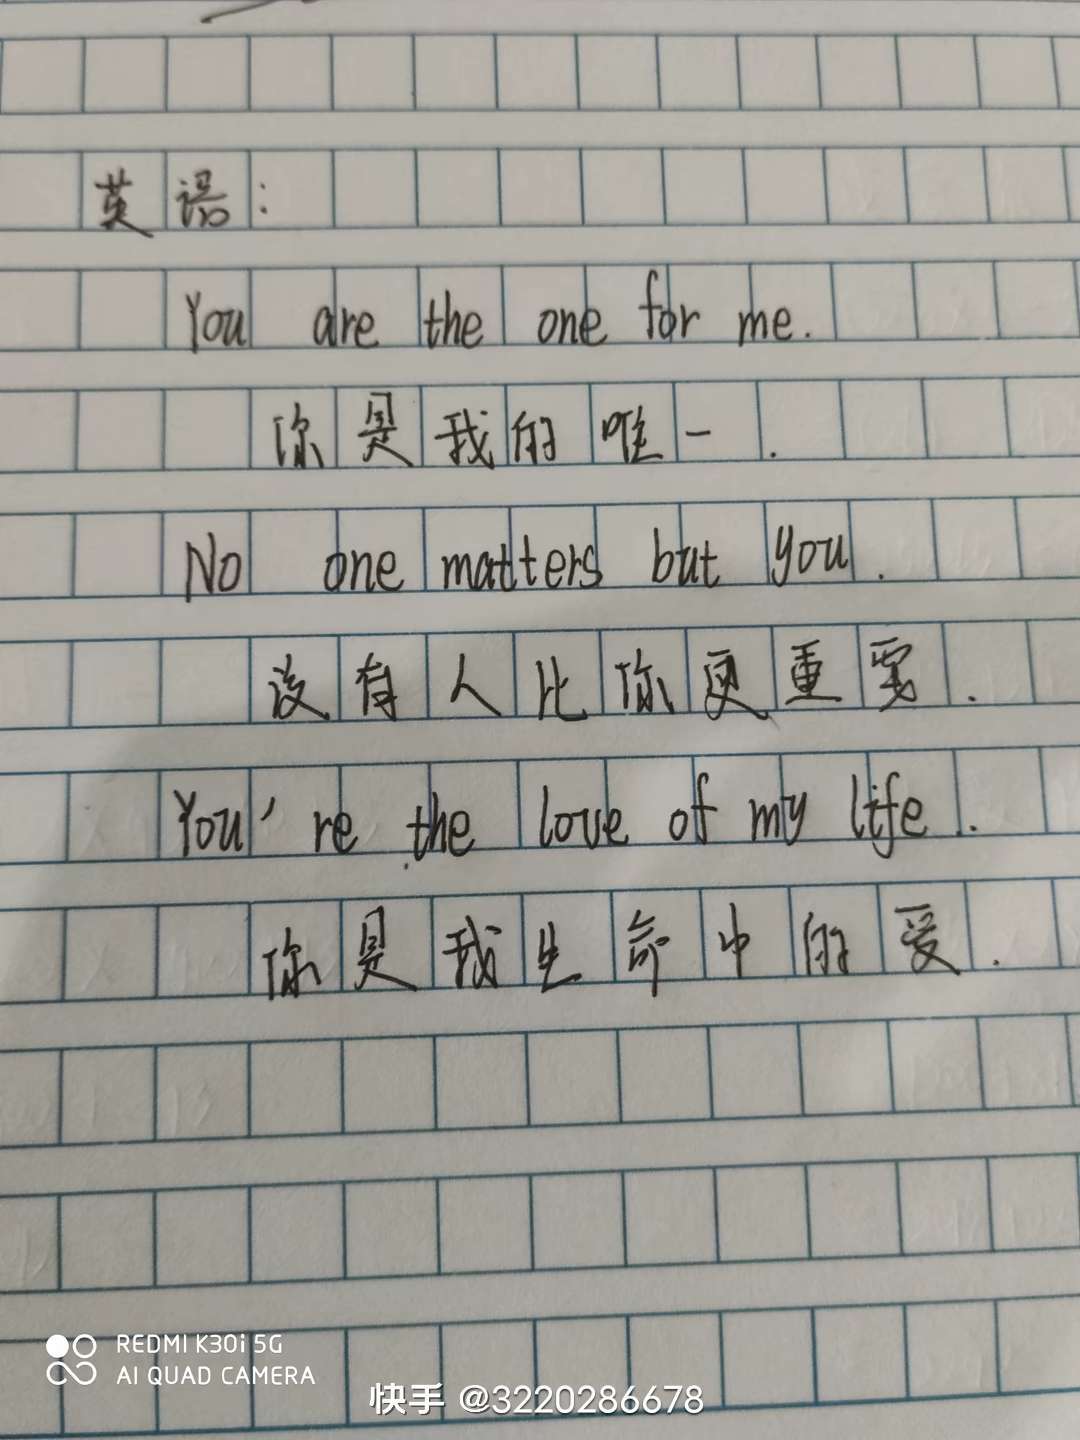 英语:
You are the one for me.
你是我的唯一.
No one matters but you.
没有人比你更重要.
You're the love of my life.
你是我生命中的爱.
REDMI K30i 5G
AI QUAD CAMERA
快手 @3220286678